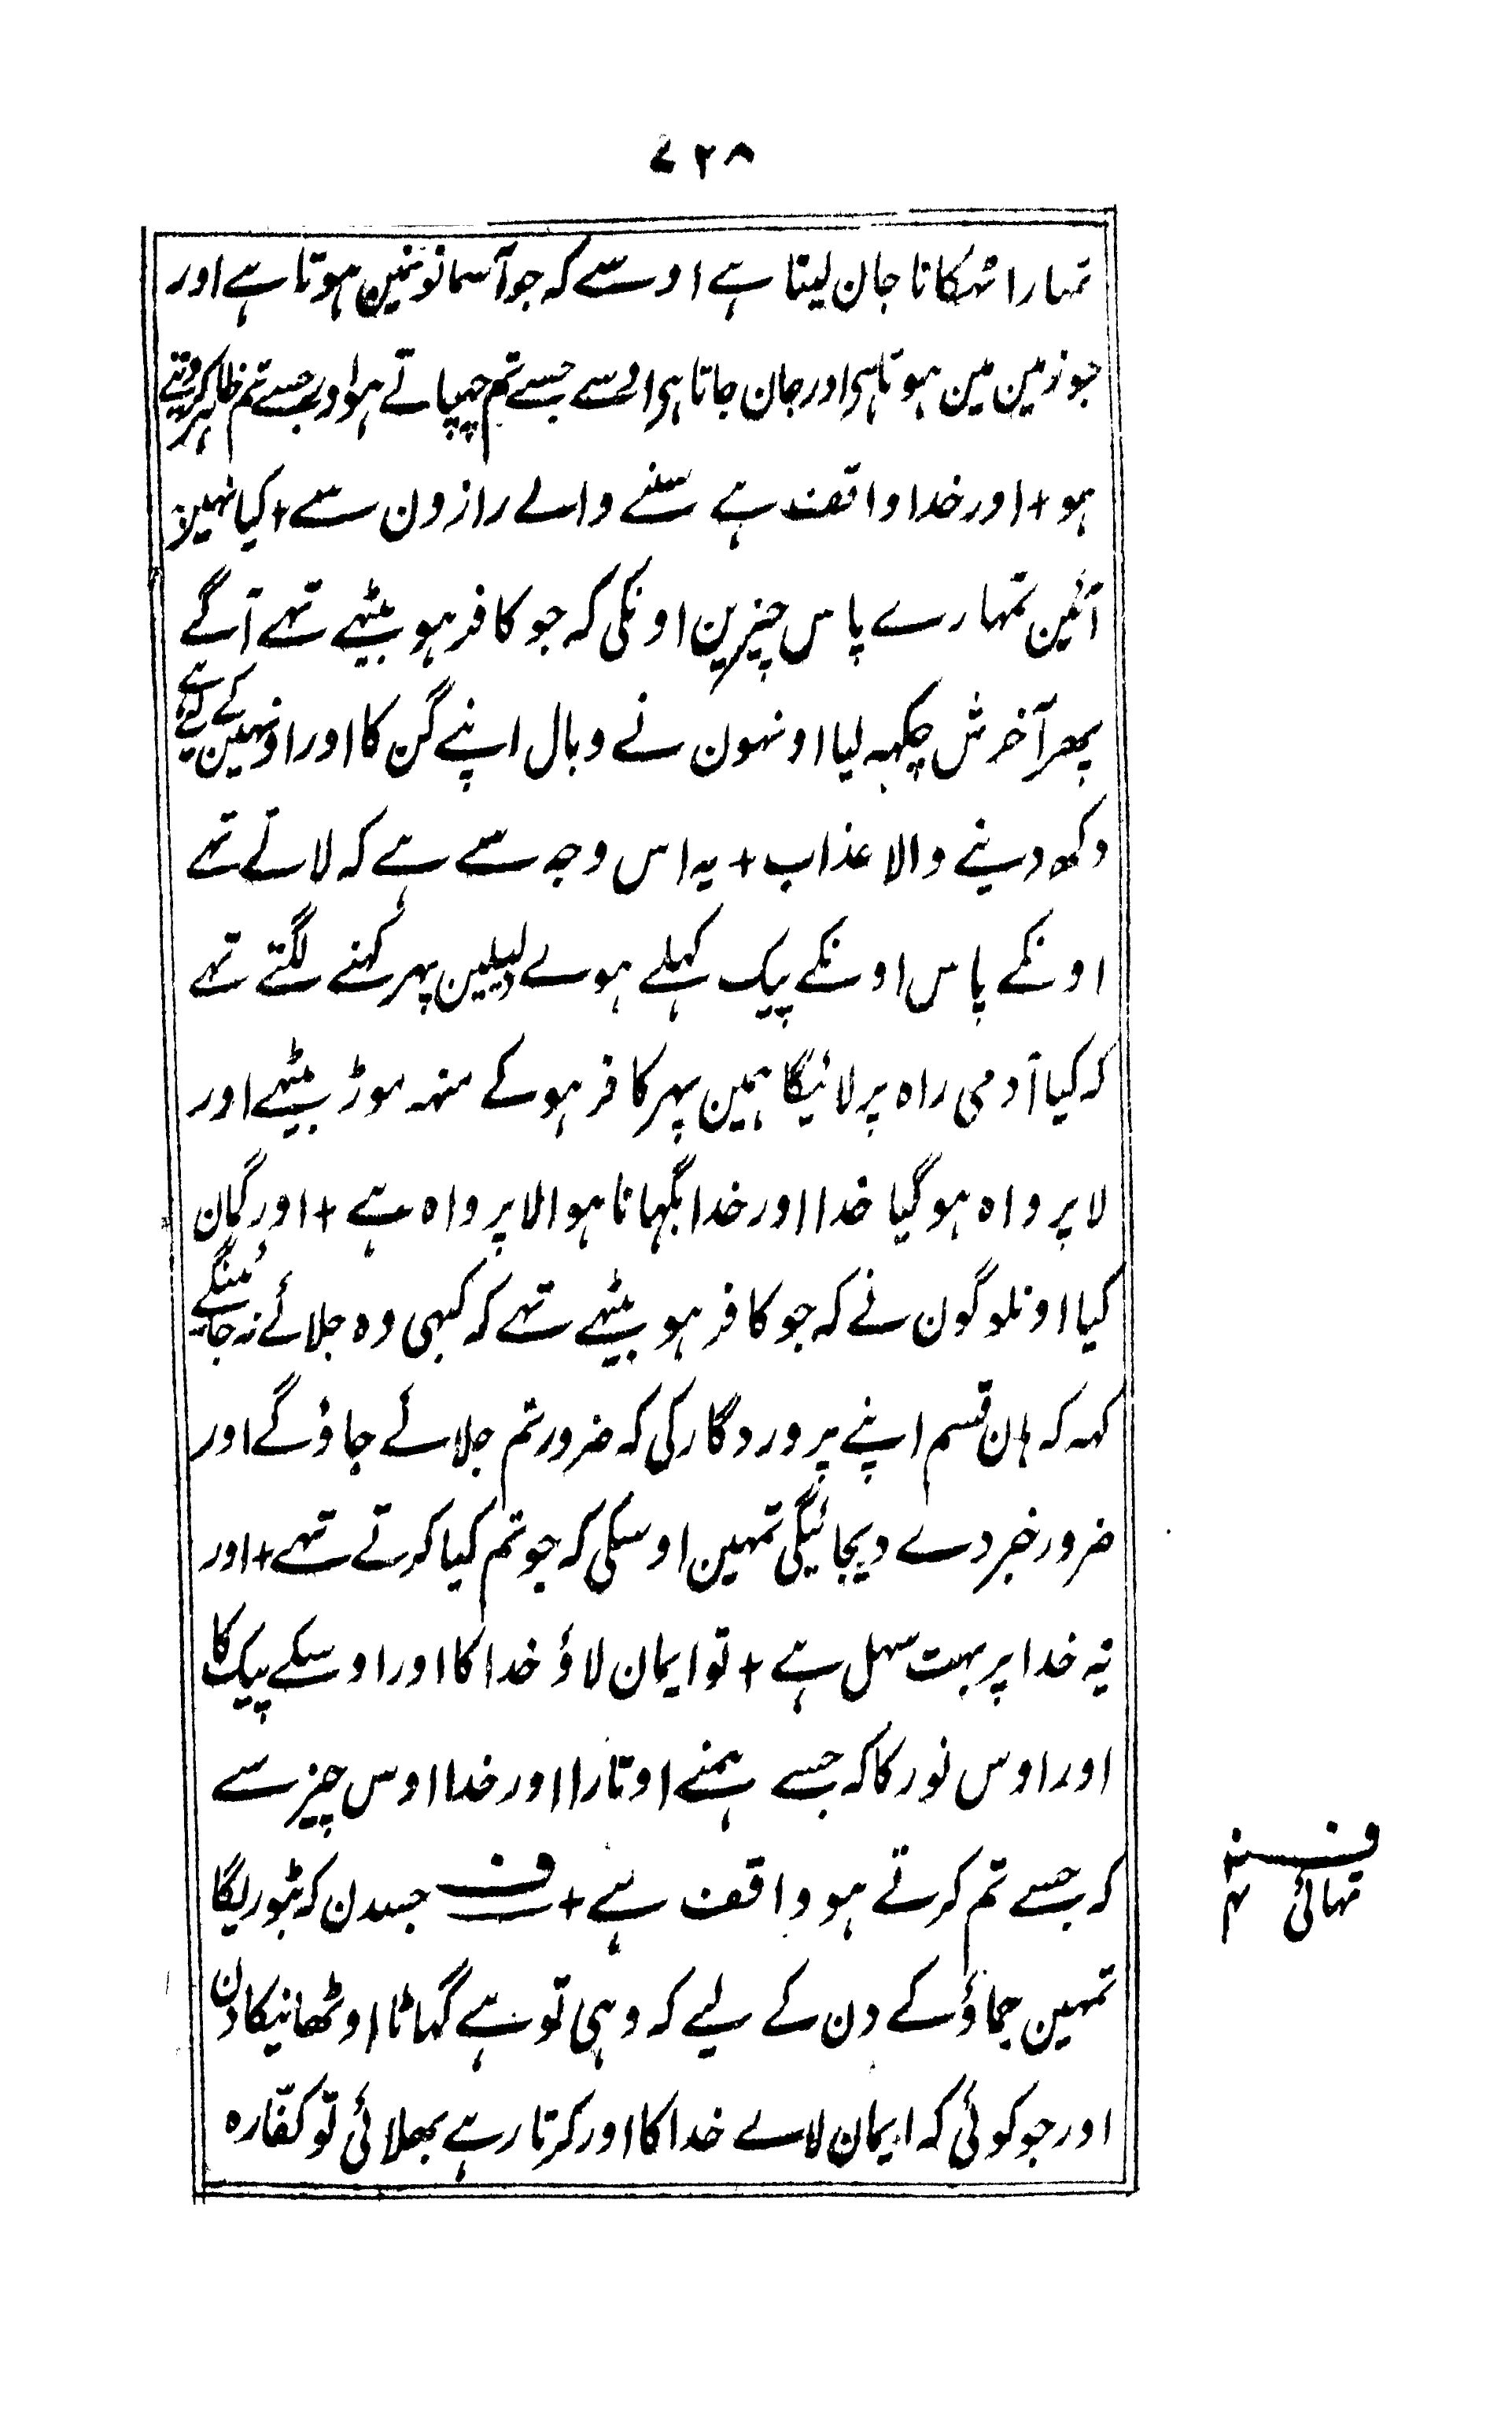 ۷۲۸
تمہارا ٹہکانا جان لیتا ہے اوسے کہ جو آسمانونمین ہوتا ہے اور
جو زمین مین ہوتا ہی اور جان جاتا ہی اوسے جسے تم چہپاتے ہو اور جسے تم ظاہر کر دیتے
ہو + اور خدا واقف ہے سنے والے رازون سے + کیا نہین
آئین تمہارے پاس چیزین اونکی کہ جو کافر ہو بیٹھے تہے آگے
پھر آخرش چکہہ لیا اونہون نے وبال اپنے گن کا اور اونہین کے لیے ہے
دکھ دینے والا عذاب + یہ اس وجہ سے ہے کہ لاتے تہے
اونکے پاس اونکے پیک کہلے ہوے دلیلین پہر کہنے لگتے تہے
کہ کیا آدمی راہ پر لائیگا ہمین پہر کافر ہوکے منہہ موڑ بیٹھے اور
لا پرواہ ہو گیا خدا اور خدا بگہانا ہوا لا پرواہ ہے + اور گمان
کیا اونلوگون نے کہ جو کافر ہو بیٹھے تہے کہ کبہی وہ جلائے نہ جائینگے
کہہ کہ ہان قسم اپنے پروردگار کی کہ ضرور تم جلائے جاؤگے اور
ضرور خبر دے دیجائیگی تمہین اوسکی کہ جو تم کیا کرتے تہے + اور
یہ خدا پر بہت سہل ہے + تو ایمان لاؤ خدا کا اور اوسکے پیک کا
اور اوس نور کا کہ جسے ہمنے اوتارا اور خدا اوس چیز سے
کہ جسے تم کرتے ہو واقف ہے + ف جسدن کہ بٹوریگا
تمہین جماؤ کے دن کے لیے کہ وہی تو ہے گہاٹا اوٹھانیکا دن
اور جو کوئی کہ ایمان لاے خدا کا اور کرتا رہے بھلائی تو کفّارہ
تہائی